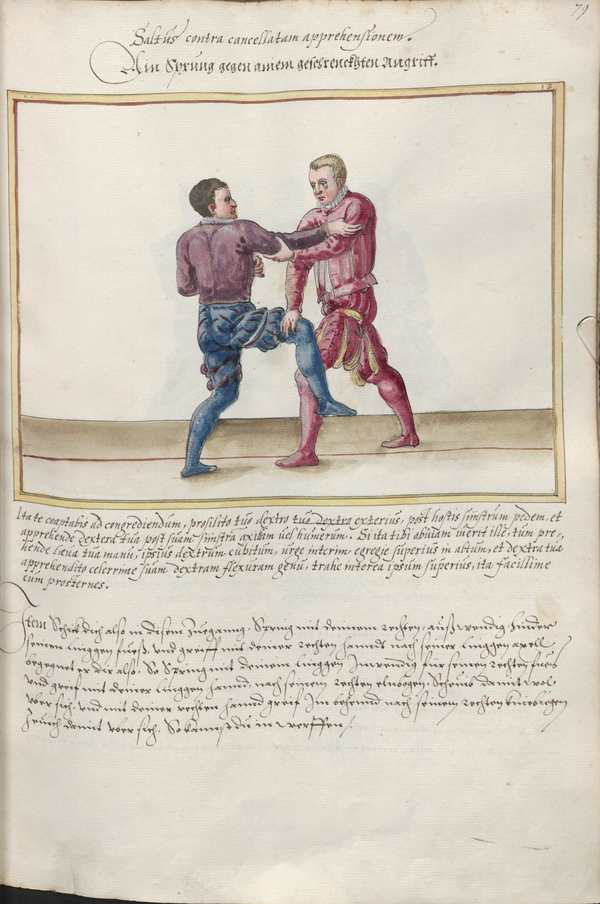 79
Saltus contra cancellatam apprehensionem.
Ain Sprung gegen ainem geschrenckhten Angriff.
Ita te coaptabis ad congrediendum, prosilito tuo dextro tuo dextro exterius, post hostis sinistrum pedem, et
apprehende dextera tua post suam sinistra axillam uel humerum. Si ita tibi obuiam iuerit ille, tum pre-,
hende laeua tua manu, ipsius dextrum cubitum, urge interim egregie superius in altum, et dextra tua
apprehendito celerrime suam dextram flexuram genu, trahe interea ipsum superius, ita facillime
eum prosternes.
Item Schick dich also in disem Zueganng. Spring mit deinem rechten, außwendig hinder
seinen linggen fueß. Und greiff mit deiner rechten hanndt nach seiner linggen axell
begegnet er dir also. So Spring mit deinem linggen Inwendig für seinen rechten fueß
Und greif mit deiner linggen hannd, nach seinem rechten elnbogen. Scheub damit wol
uber sich, und mit deiner rechten hannd greif Im behennd nach seinem rechten kniebiegen
Zeuch damit uber sich, So kannst du in werffen.